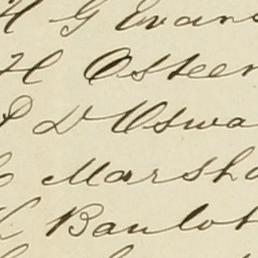 H G Evans
H Osteen
D Oswa
Marsha
Baulot